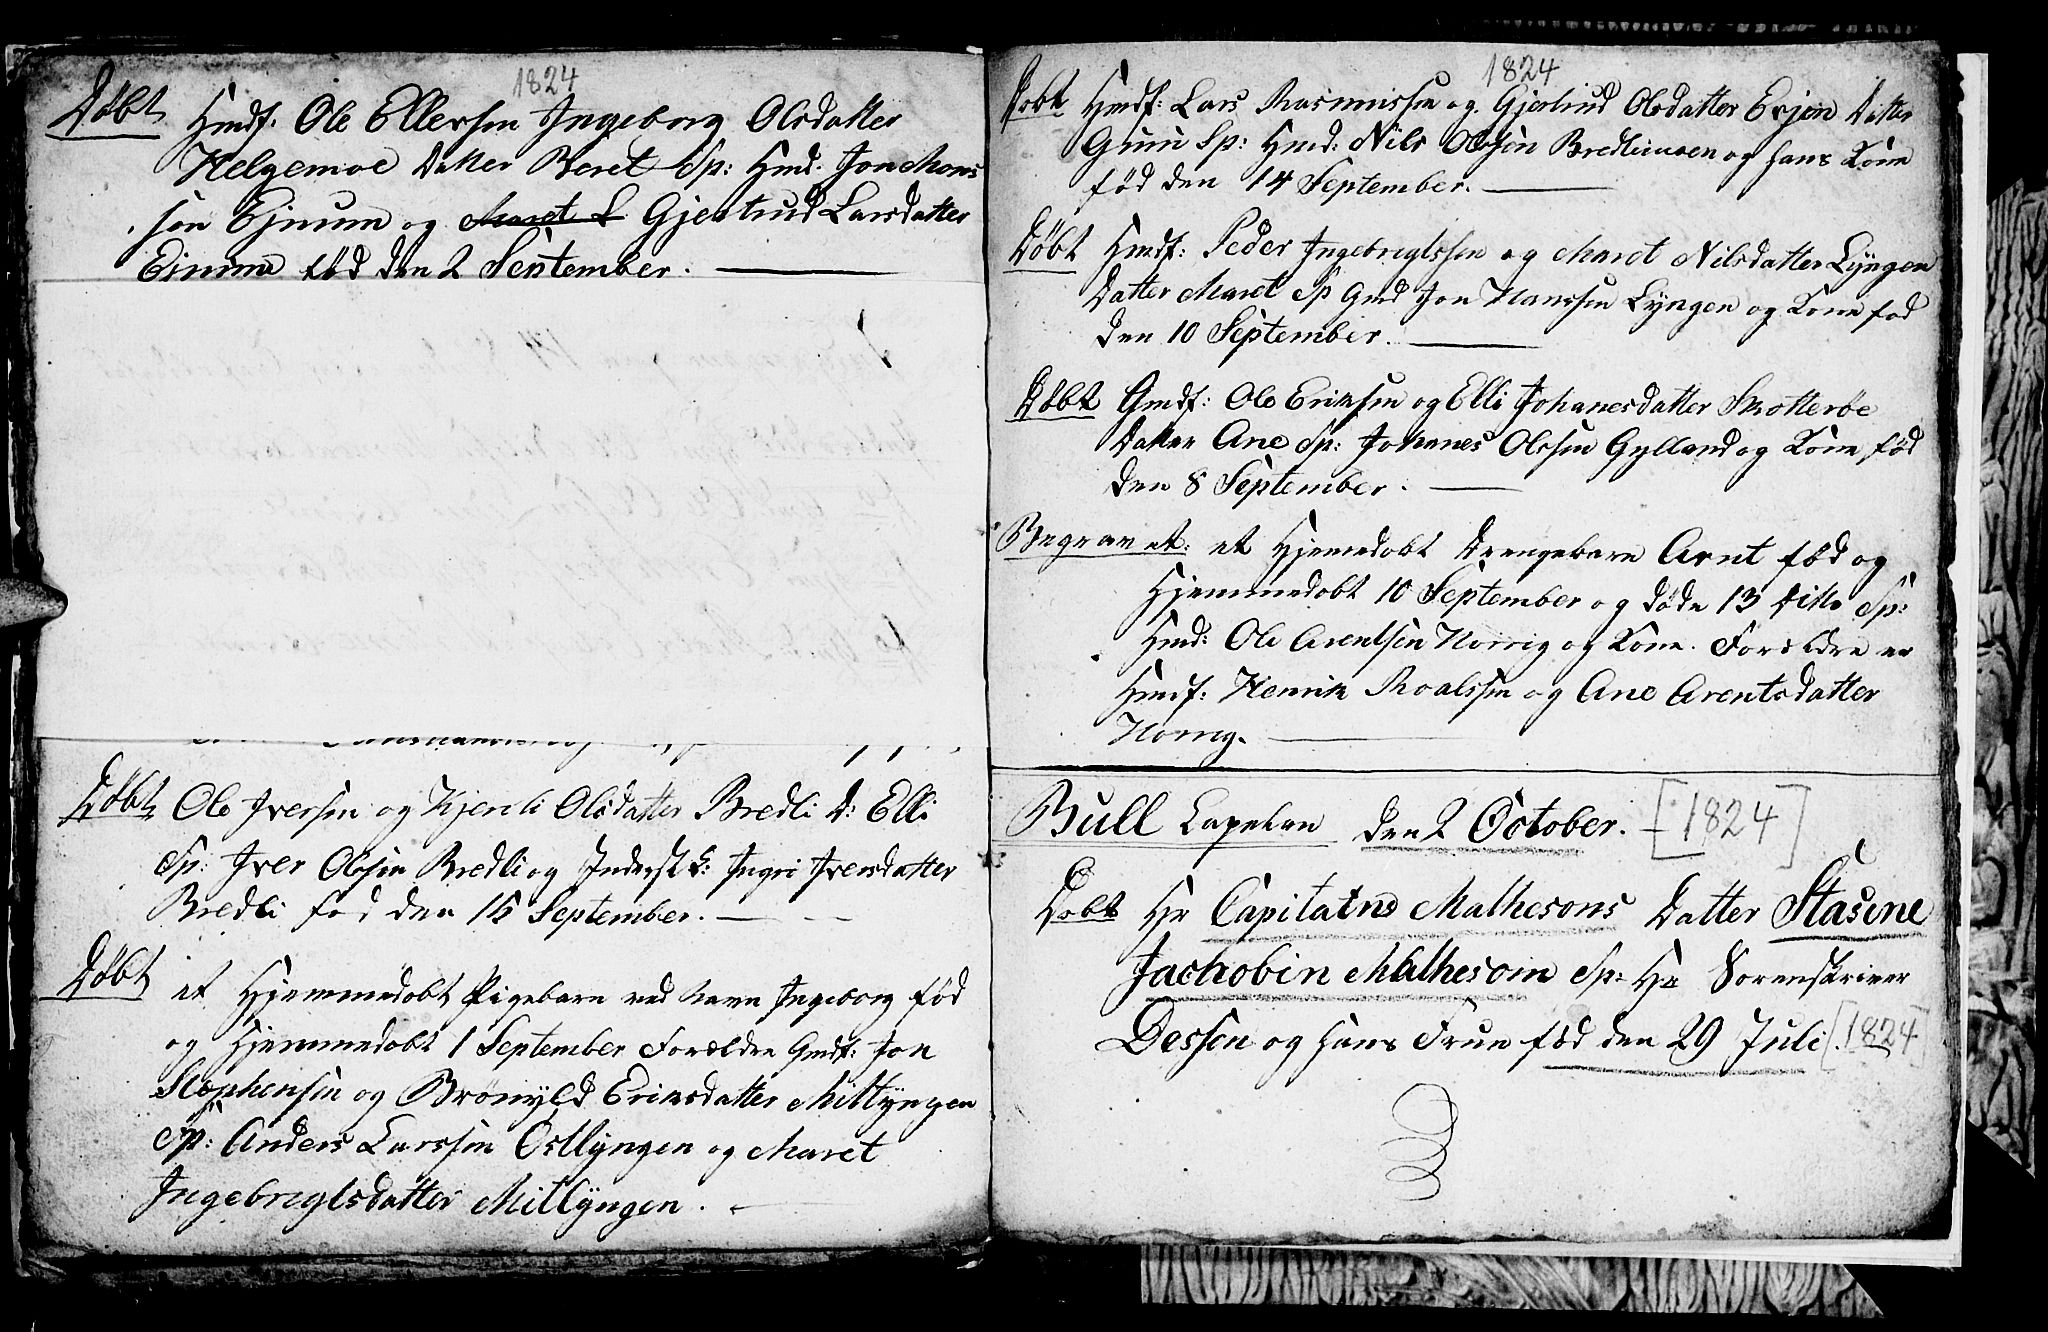 1824
Døbt Hmdf. Ole Ellersen Ingeborg Olsdatter
Helgemoe Datter Beret Sp: Hmd. Jon Mons
søn Ejnum og Maret L Gjertrud Larsdatter
Einum fød den 2 September.
Døbt Ole Iversen og Kjersti Olsdatter Bredli D: Elli
Sp: Iver Olsøn Bredli og Inderst K: Ingri Iversdatter
Bredli fød den 15 September.
Døbt et Hjemmedøbt Pigebarn ved Navn Ingeborg fød
og Hjemmedøbt 1 September Forældre Gmdf: Jon
Stephensøn og Brønyld Eriksdatter Mitlyngen
Sp: Anders Larssøn Østlyngen og Maret
Ingebregtsdatter Mitlyngen.
1824
Døbt Hmdf: Lars Rasmussen og Gjertrud Olsdatter Evjen Datter
Guru Sp: Hmd: Nils Olssøn og hans Kone
fød den 14 September.
Døbt Hmdf: Peder Ingebregtssen og Maret Nilsdatter Lyngen
Datter Maret Sp Gmd Jon Hanssen Lyngen og Kone fød
den 10 September.
Døbt Gmdf: Ole Eriksen og Elli Johanesdatter Skotterøe
Datter Ane Sp: Johanes Olssen Gylland og Kone, fød
den 8 September.
Begravet: et Hjemedøbt Drengebarn Arnt fød og
Hjemmedøbt 10 September og døde 13 Ditto Sp:
Hmd: Ole Arentsen Horrig og Kone. Forældre er
Hmdf: Henrik Roalssen og Ane Arentsdatter
Horrig.
Bull Capelan den 2 October. [1824]
Døbt Hr Capitaine Mathesons Datter Stasine
Jachobin Mathesoin Sp: Hr Sorenskriver
Dessen og Hans Frue fød den 29 Juli. [1824]